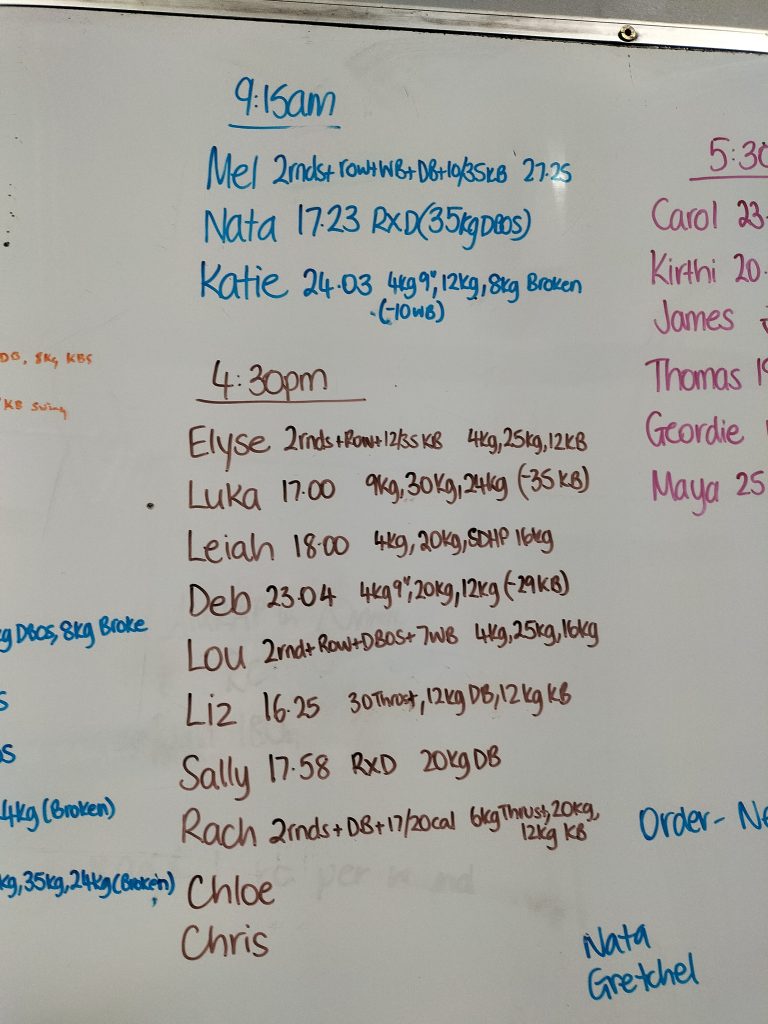 9:15am
Mel 2rnds+row+WB+DB+10/35KB 27.25
Nata 17.23 RXD(35kgDBOS)
Katie 24.03 4kg 9", 12kg, 8kg Broken
(-10WB)
4:30pm
Elyse 2rnds+Row+12/35KB 4kg, 25kg, 12KB
Luka 17.00 9kg, 30kg, 24kg (-35KB)
Leiah 18.00 4kg, 20kg, SDHP 16kg
Deb 23.04 4kg 9", 20kg, 12kg (-29KB)
Lou 2rnd+Row+DBOS+7WB 4kg, 25kg, 16kg
Liz 16.25 30Thrust, 12kg DB, 12kg KB
Sally 17.58 RXD 20kg DB
Rach 2rnds+DB+17/20cal 6kg Thrust, 20kg,
12kg KB
Chloe
Chris
5:30
Carol 23.
Kirthi 20.
James
Thomas 19
Geordie
Maya 25
Order - Ne
Nata
Gretchel
DB, 8kg KBS
KB Swing
kg DBOS, 8kg Broke
S
OS
4kg (Broken)
kg, 35kg, 24kg (Broken)